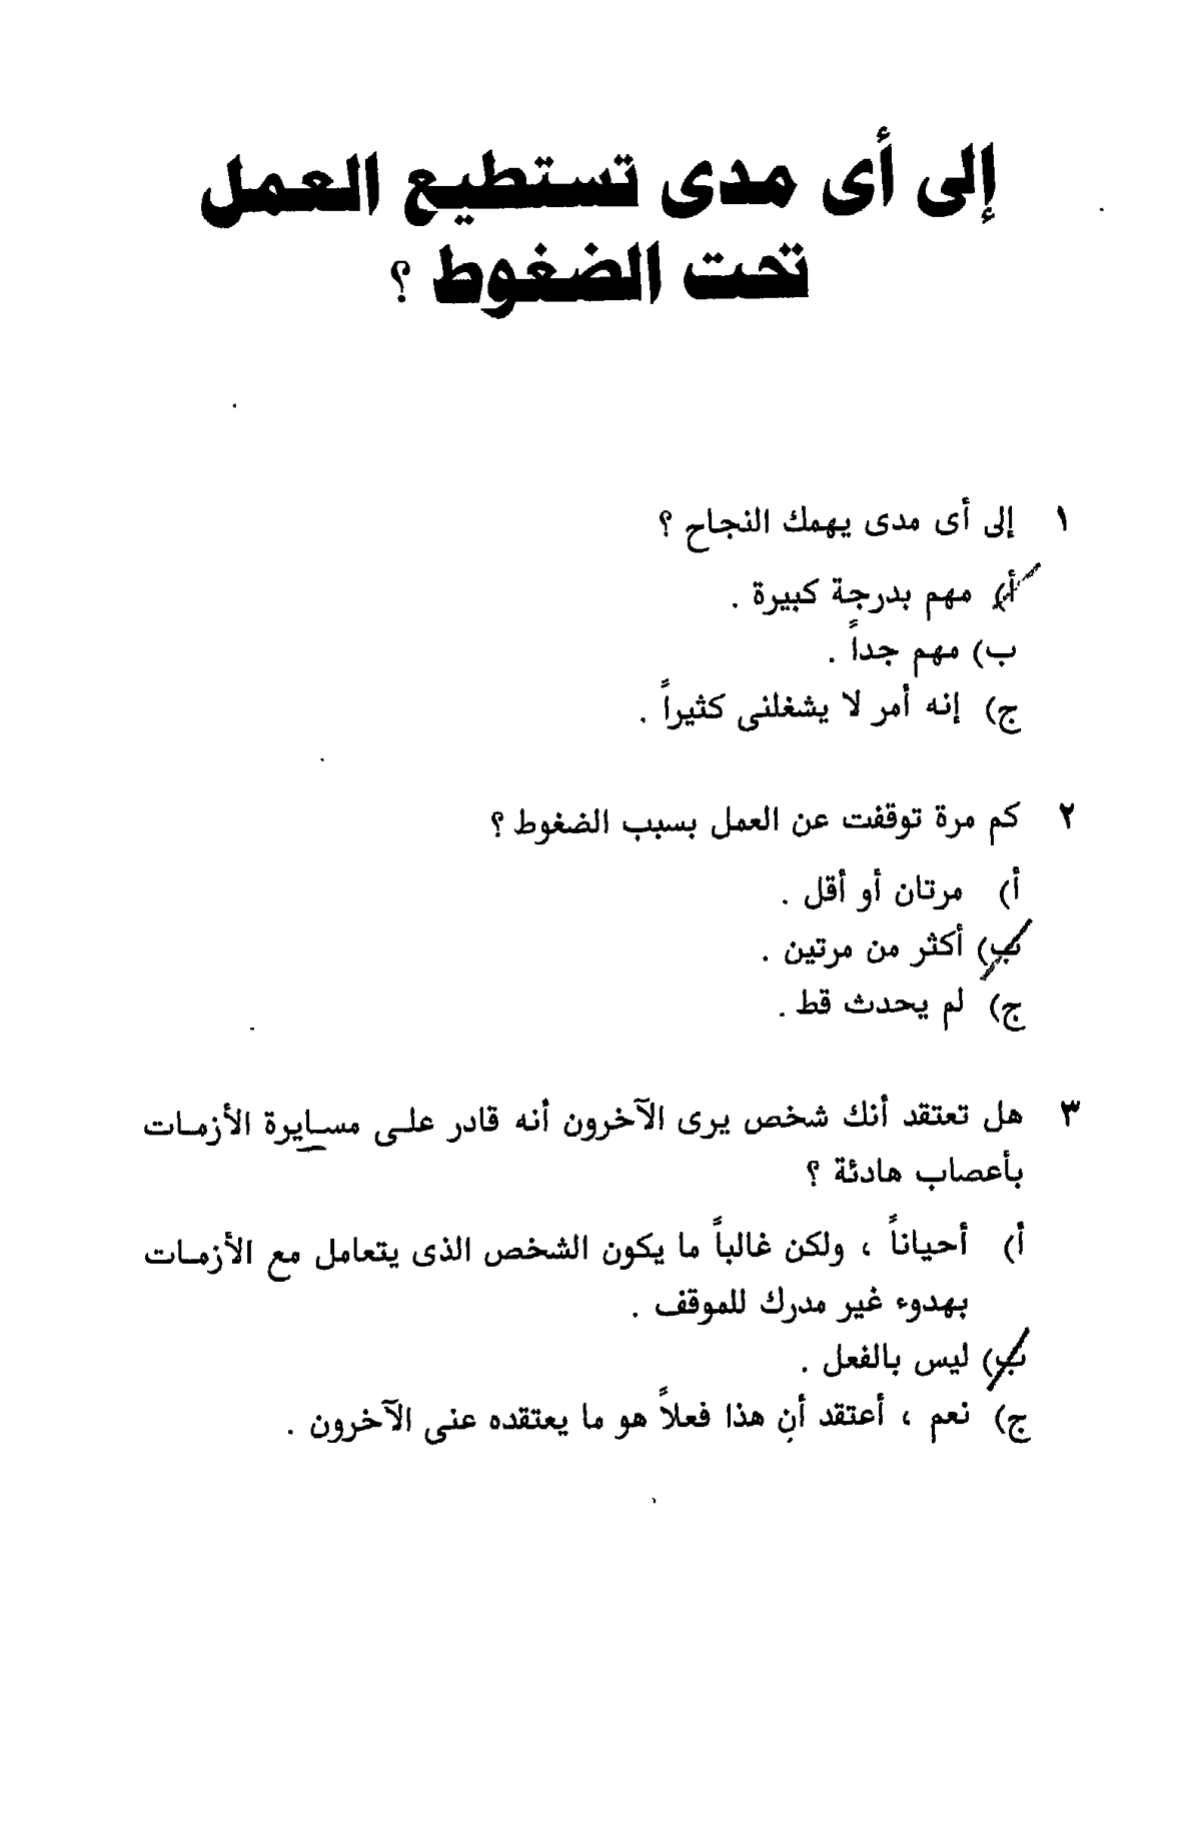 إلى أى مدى تستطيع العمل
تحت الضغوط ؟
١ إلى أى مدى يهمك النجاح ؟
أ) مهم بدرجة كبيرة .
ب) مهم جداً .
ج) إنه أمر لا يشغلنى كثيراً .
٢ كم مرة توقفت عن العمل بسبب الضغوط ؟
أ) مرتان أو أقل .
ب) أكثر من مرتين .
ج) لم يحدث قط .
٣ هل تعتقد أنك شخص يرى الآخرون أنه قادر على مسايرة الأزمات
بأعصاب هادئة ؟
أ) أحياناً ، ولكن غالباً ما يكون الشخص الذى يتعامل مع الأزمات
بهدوء غير مدرك للموقف .
ب) ليس بالفعل .
ج) نعم ، أعتقد أن هذا فعلاً هو ما يعتقده عنى الآخرون .